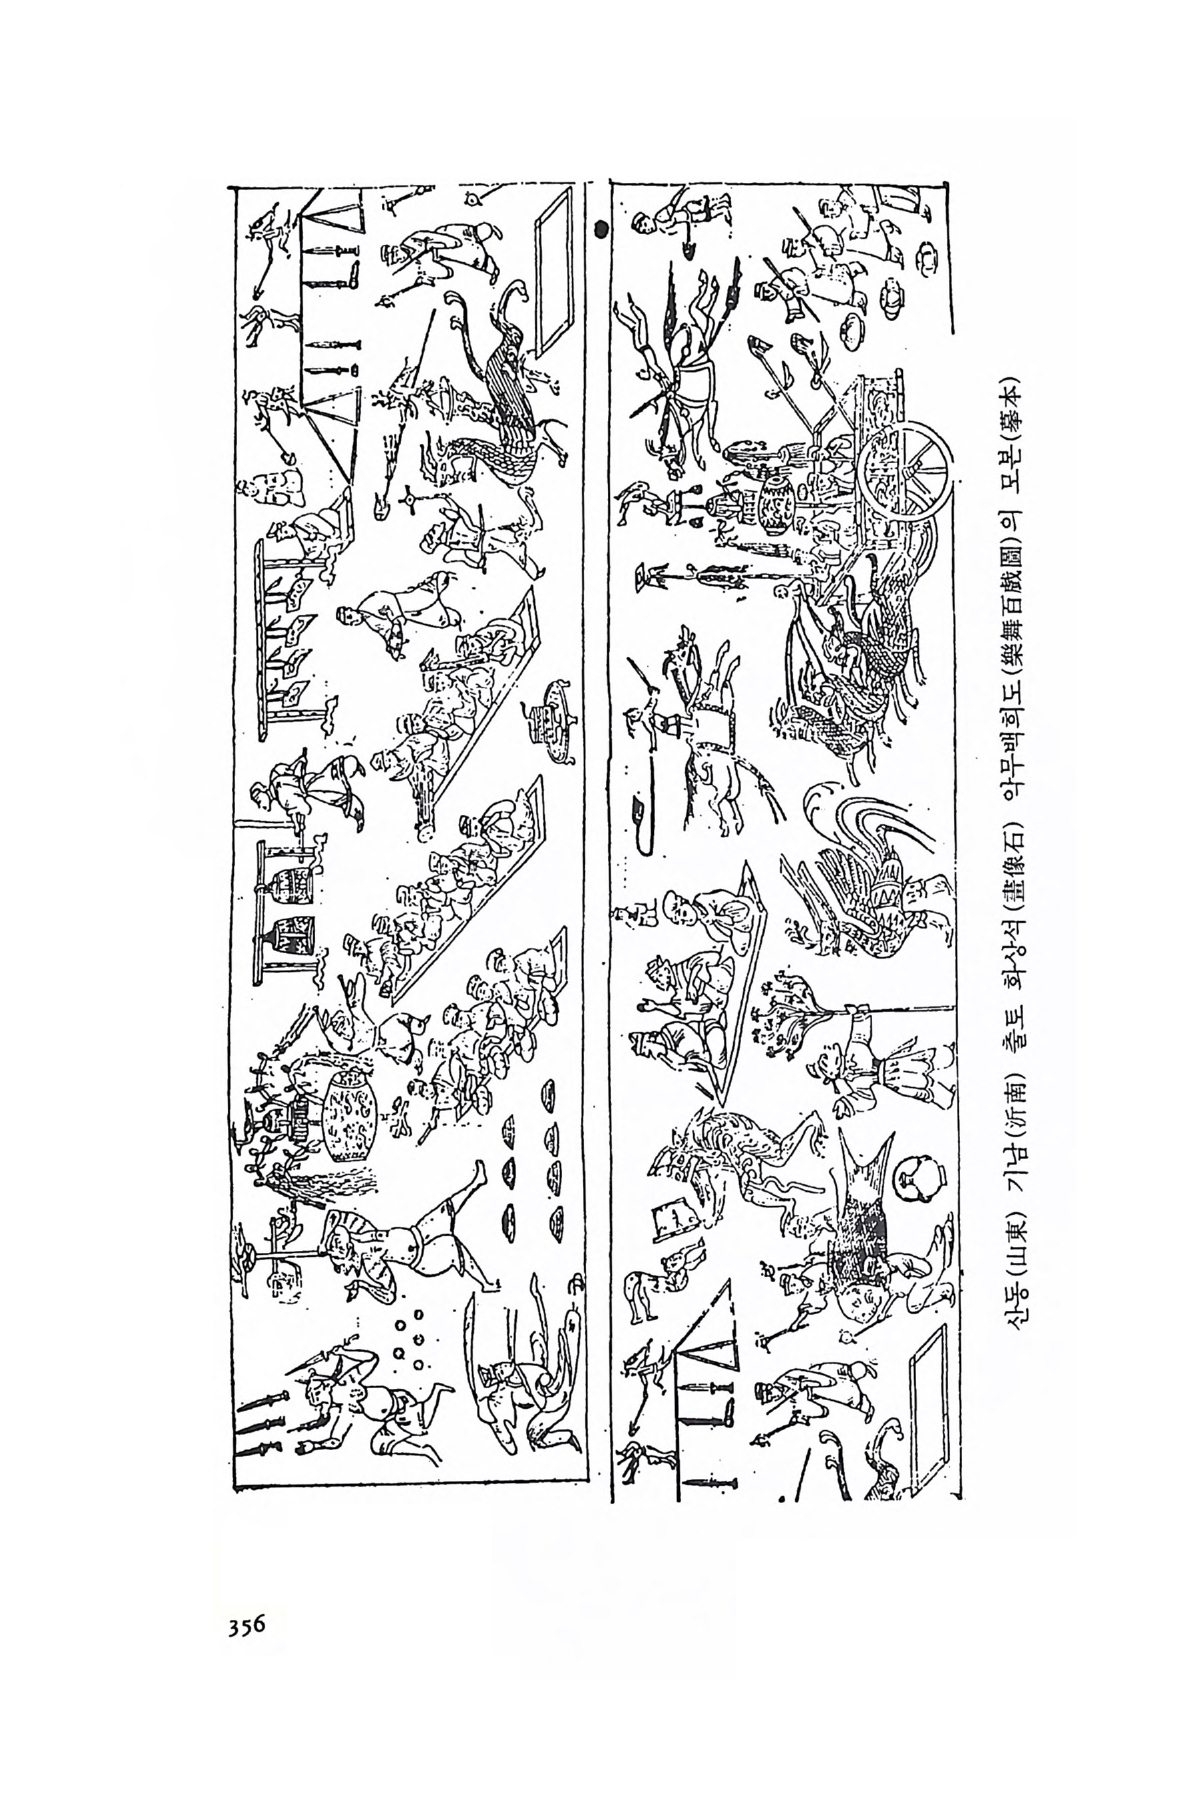 산동(山東) 기남(沂南) 출토 화상석(畫像石) 악무백희도(樂舞百戲圖)의 모본(摹本)
356